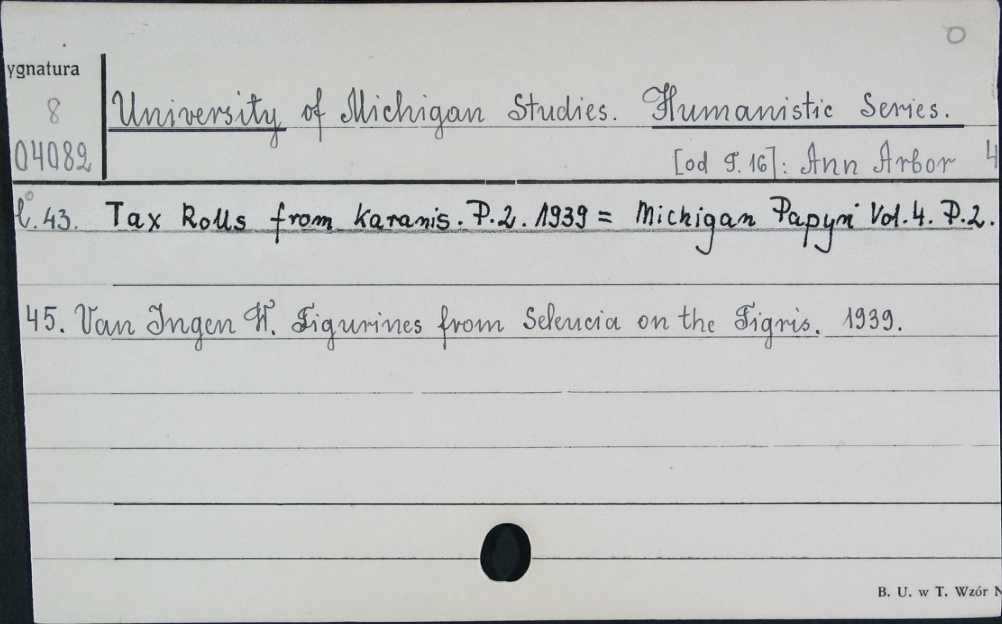 ygnatura
8
04082
University of Michigan Studies. Humanistic Series.
[od T. 16]: Ann Arbor 4
43. Tax Rolls from Karanis. P.2. 1939 = Michigan Papyri Vol. 4. P.2.
45. Van Ingen W. Figurines from Seleucia on the Tigris. 1939.
B. U. w T. Wzór N